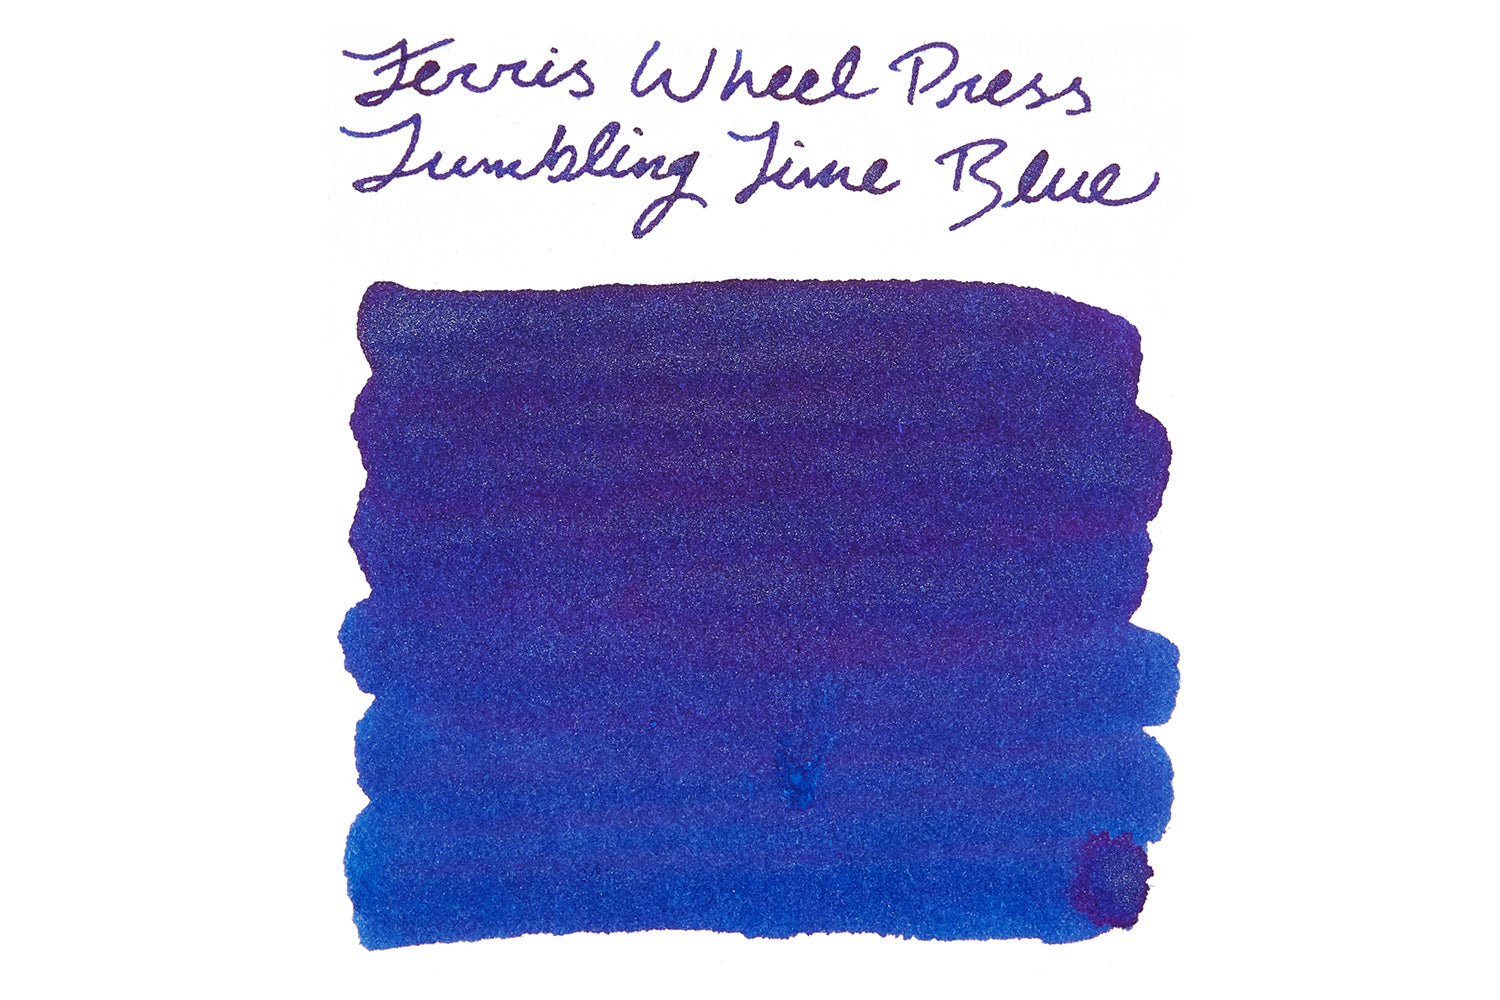 Ferris Wheel Press
Tumbling Time Blue